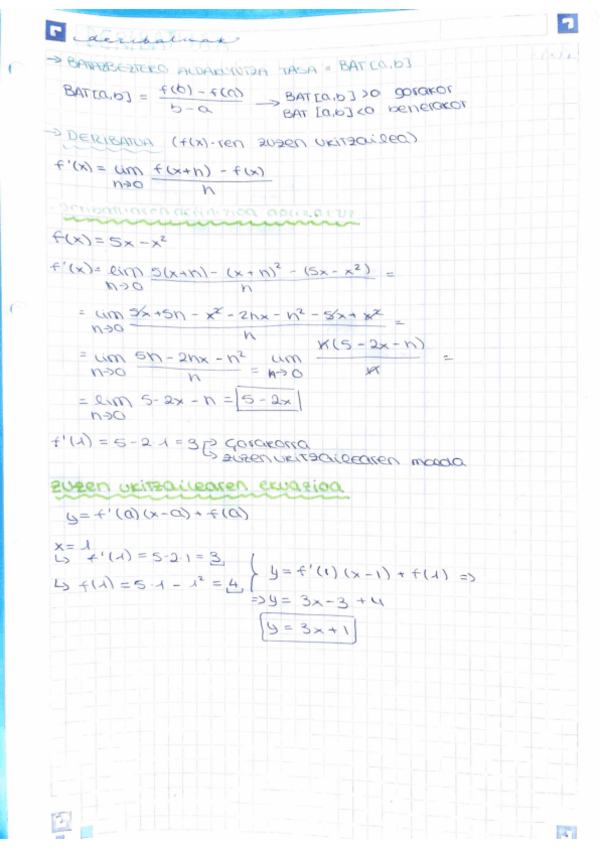 deribatuak
→ BATAZBESTEKO ALDAKUNTZA TASA = BAT[a,b]
BAT[a,b] = f(b) - f(a) / b - a → BAT[a,b]>0 gorakor
BAT[a,b]<0 beherakor
→ DERIBATUA (f(x)-ren zuzen ukitzailea)
f'(x) = lim h→0 f(x+h) - f(x) / h
f(x) = 5x - x²
f'(x) = lim h→0 5(x+h) - (x+h)² - (5x - x²) / h =
= lim h→0 5x + 5h - x² - 2hx - h² - 5x + x² / h =
= lim h→0 5h - 2hx - h² / h = lim h→0 h(5 - 2x - h) / h =
= lim h→0 5 - 2x - h = 5 - 2x
f'(1) = 5 - 2·1 = 3 → Gorakorra
→ zuzen ukitzailearen malda
zuzen ukitzailearen ekuazioa
y = f'(a)(x-a) + f(a)
x = 1
↳ f'(1) = 5-2·1 = 3
↳ f(1) = 5·1 - 1² = 4
y = f'(1)(x-1) + f(1) =>
=> y = 3x - 3 + 4
y = 3x + 1